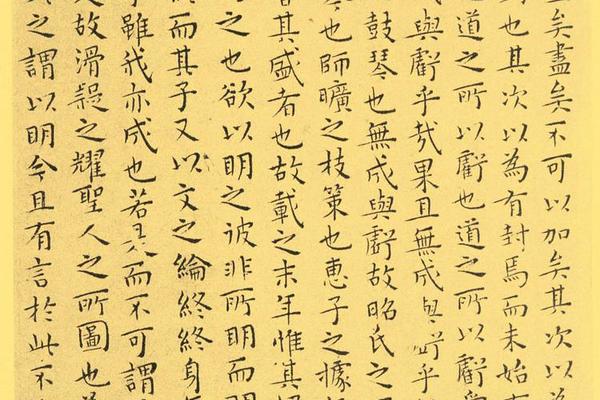 矣盡矣不可以加矣其次以為
也其次以為有封焉而未始有
道之所以虧也道之所以虧愛
與虧乎哉果且無成與虧乎
鼓琴也無成與虧故昭氏之
也師曠之枝策也惠子之據
其盛者也故載之末年惟其好
之也欲以明之彼非所明而明
而其子又以文之綸終終身
雖我亦成也若是而不可謂
故滑疑之耀聖人之所圖也
之謂以明今且有言於此不